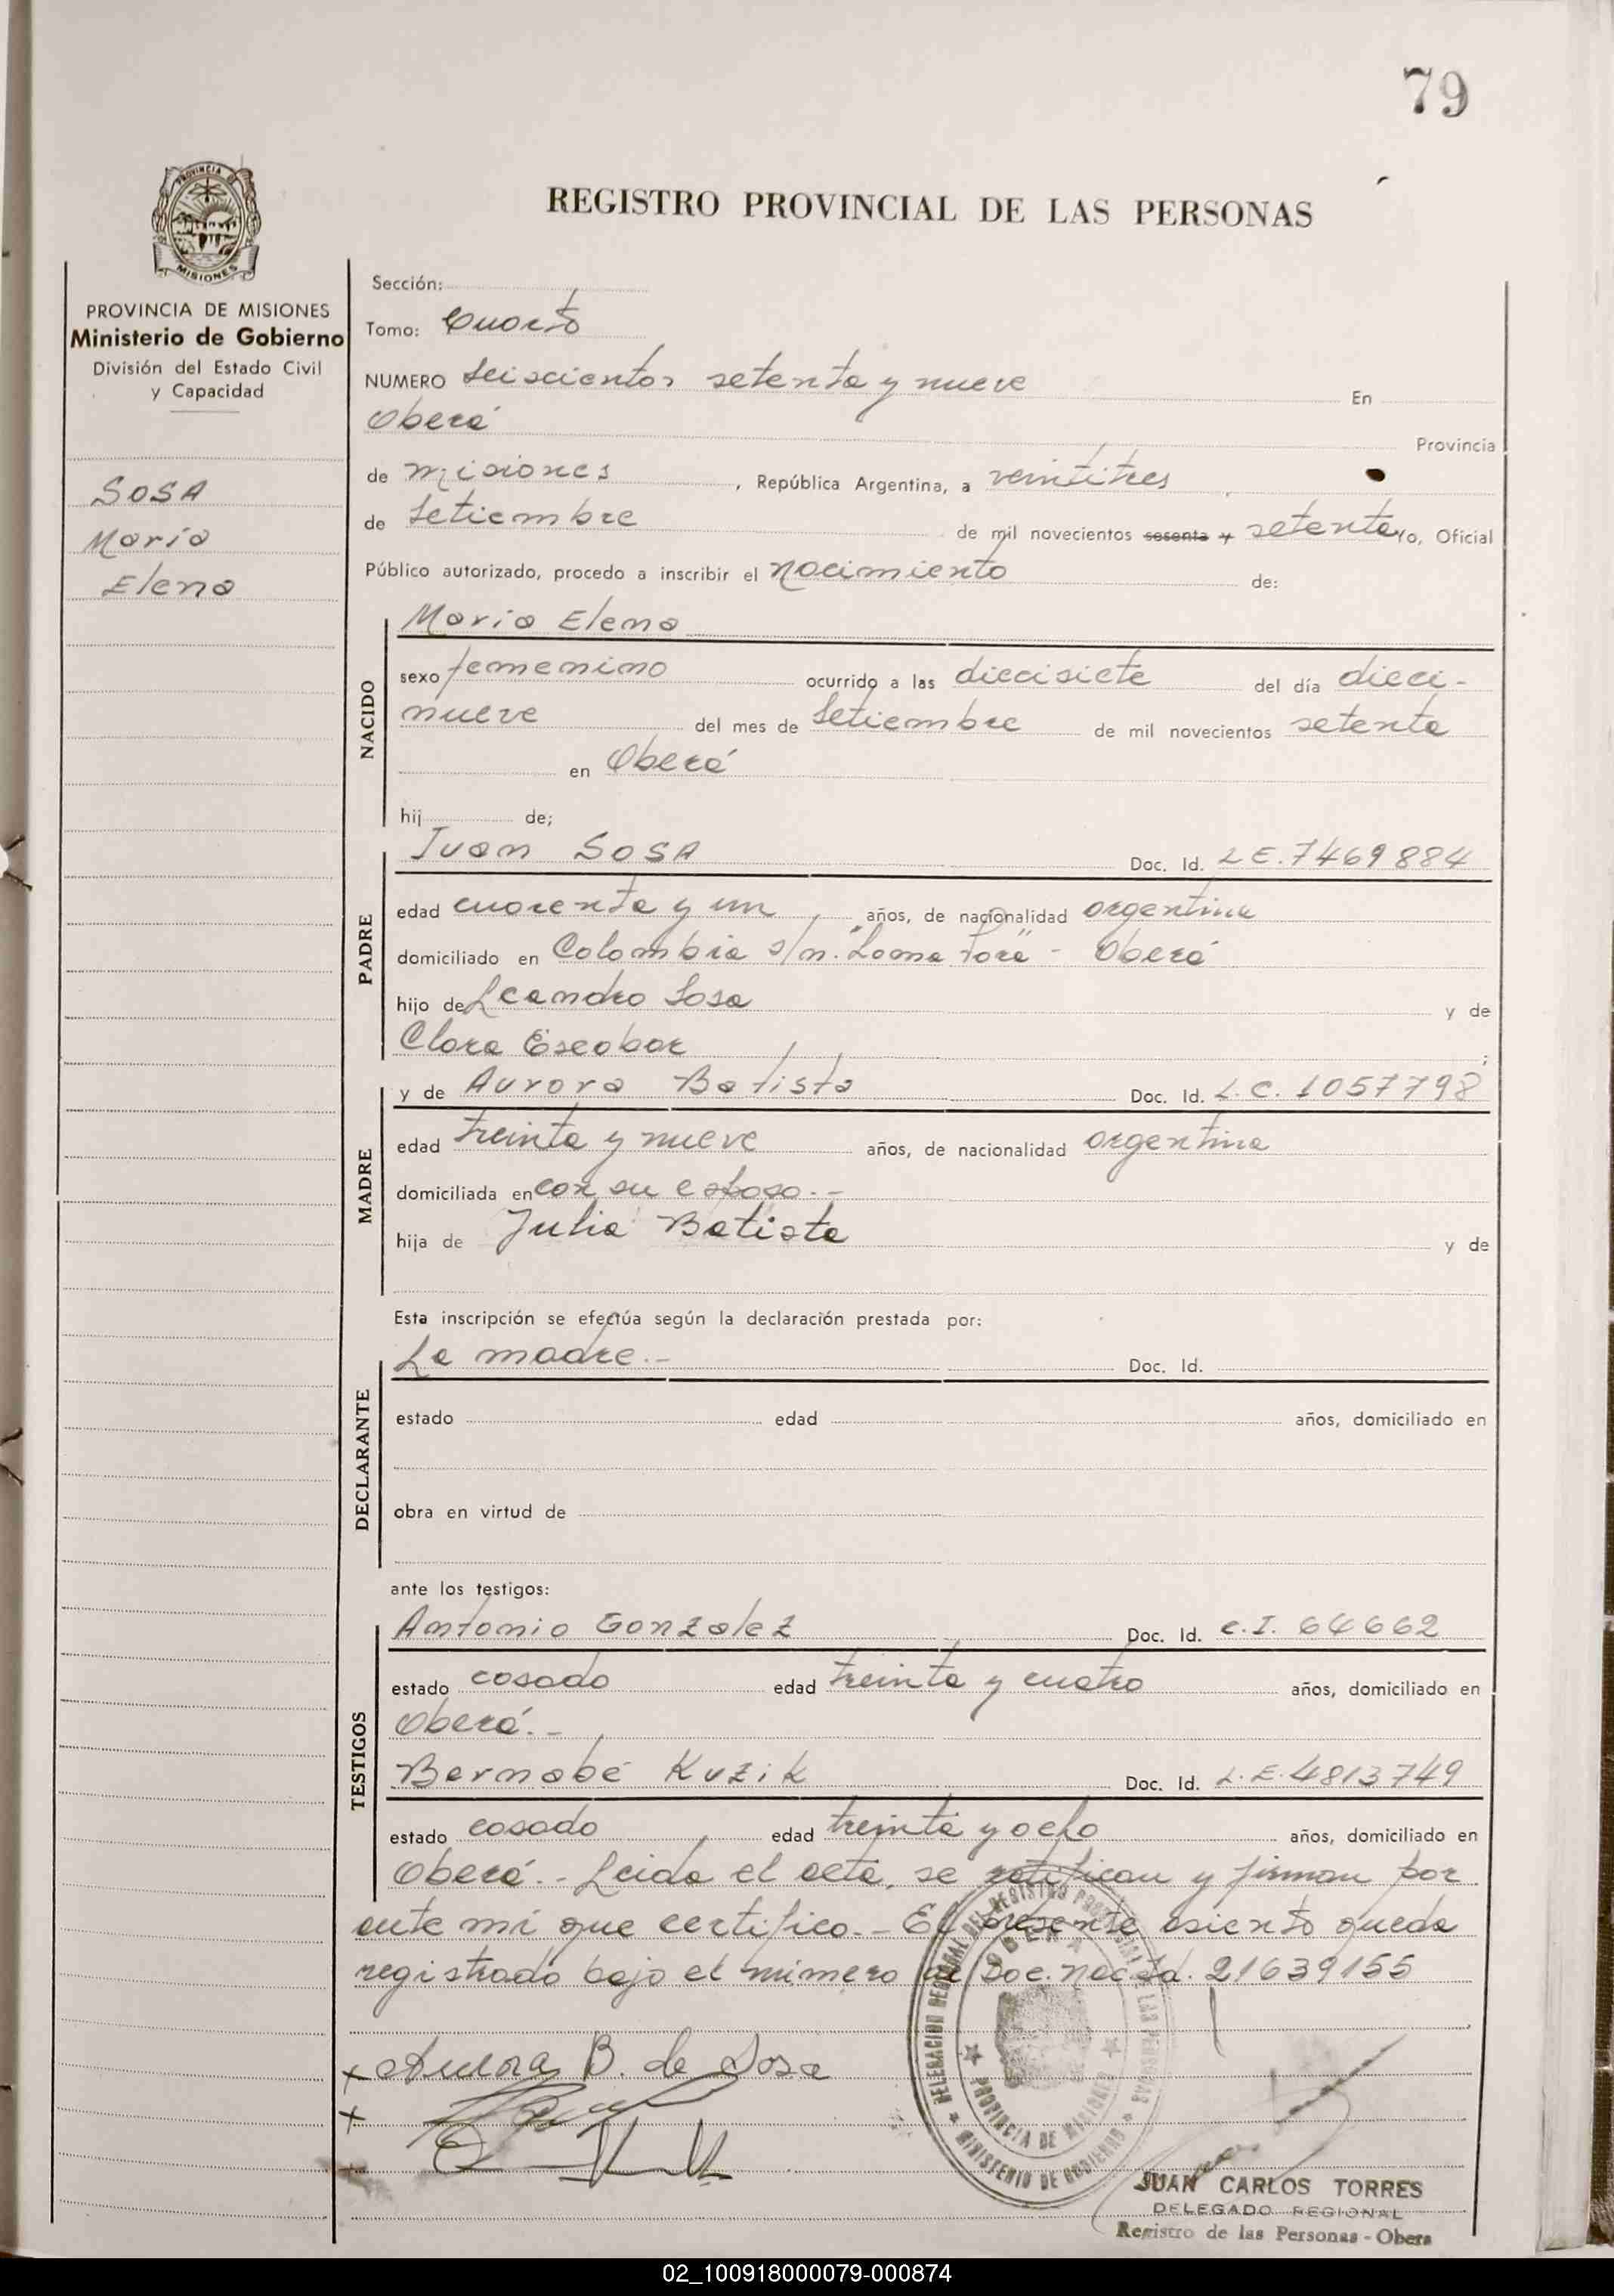 79
PROVINCIA DE
MISIONES
REGISTRO PROVINCIAL DE LAS PERSONAS
PROVINCIA DE MISIONES
Ministerio de Gobierno
División del Estado Civil
y Capacidad
SOSA
María
Elena
Sección:
Tomo: Cuarto
NUMERO Seiscientos setenta y nueve En
Oberá Provincia
de Misiones, República Argentina, a veintitres
de Setiembre de mil novecientos sesenta y setenta Yo, Oficial
Público autorizado, procedo a inscribir el nacimiento de:
NACIDO
María Elena
sexo femenino ocurrido a las diecisiete del día dieci-
nueve del mes de Setiembre de mil novecientos setenta
en Oberá
hij de;
PADRE
Juan SOSA Doc. Id. L.E. 7469884
edad cuarenta y un años, de nacionalidad argentina
domiciliado en Colombia s/n. "Loma Porá" - Oberá
hijo de Leandro Sosa y de
Clara Escobar ;
MADRE
y de Aurora Batista Doc. Id. L.C. 1057798
edad treinta y nueve años, de nacionalidad argentina
domiciliada en con su esposo.-
hija de Julia Batista y de
Esta inscripción se efectúa según la declaración prestada por:
DECLARANTE
La madre.- Doc. Id.
estado edad años, domiciliado en
obra en virtud de
ante los testigos:
TESTIGOS
Antonio Gonzalez Doc. Id. C.I. 64662
estado casado edad treinta y cuatro años, domiciliado en
Oberá.-
Bernabé Kuzik Doc. Id. L.E. 4813749
estado casado edad treinta y ocho años, domiciliado en
Oberá.- Leida el acta, se ratifican y firman por
ante mí que certifico.- El presente asiento queda
registrado bajo el número de Doc. Nac. Id. 21639155
DELEGACION REGIONAL DEL REGISTRO PROVINCIAL DE LAS PERSONAS
OBERA
PROVINCIA DE MISIONES
MINISTERIO DE GOBIERNO
x Aurora B. de Sosa
x
x
JUAN CARLOS TORRES
DELEGADO REGIONAL
Registro de las Personas - Obera
02_100918000079-000874